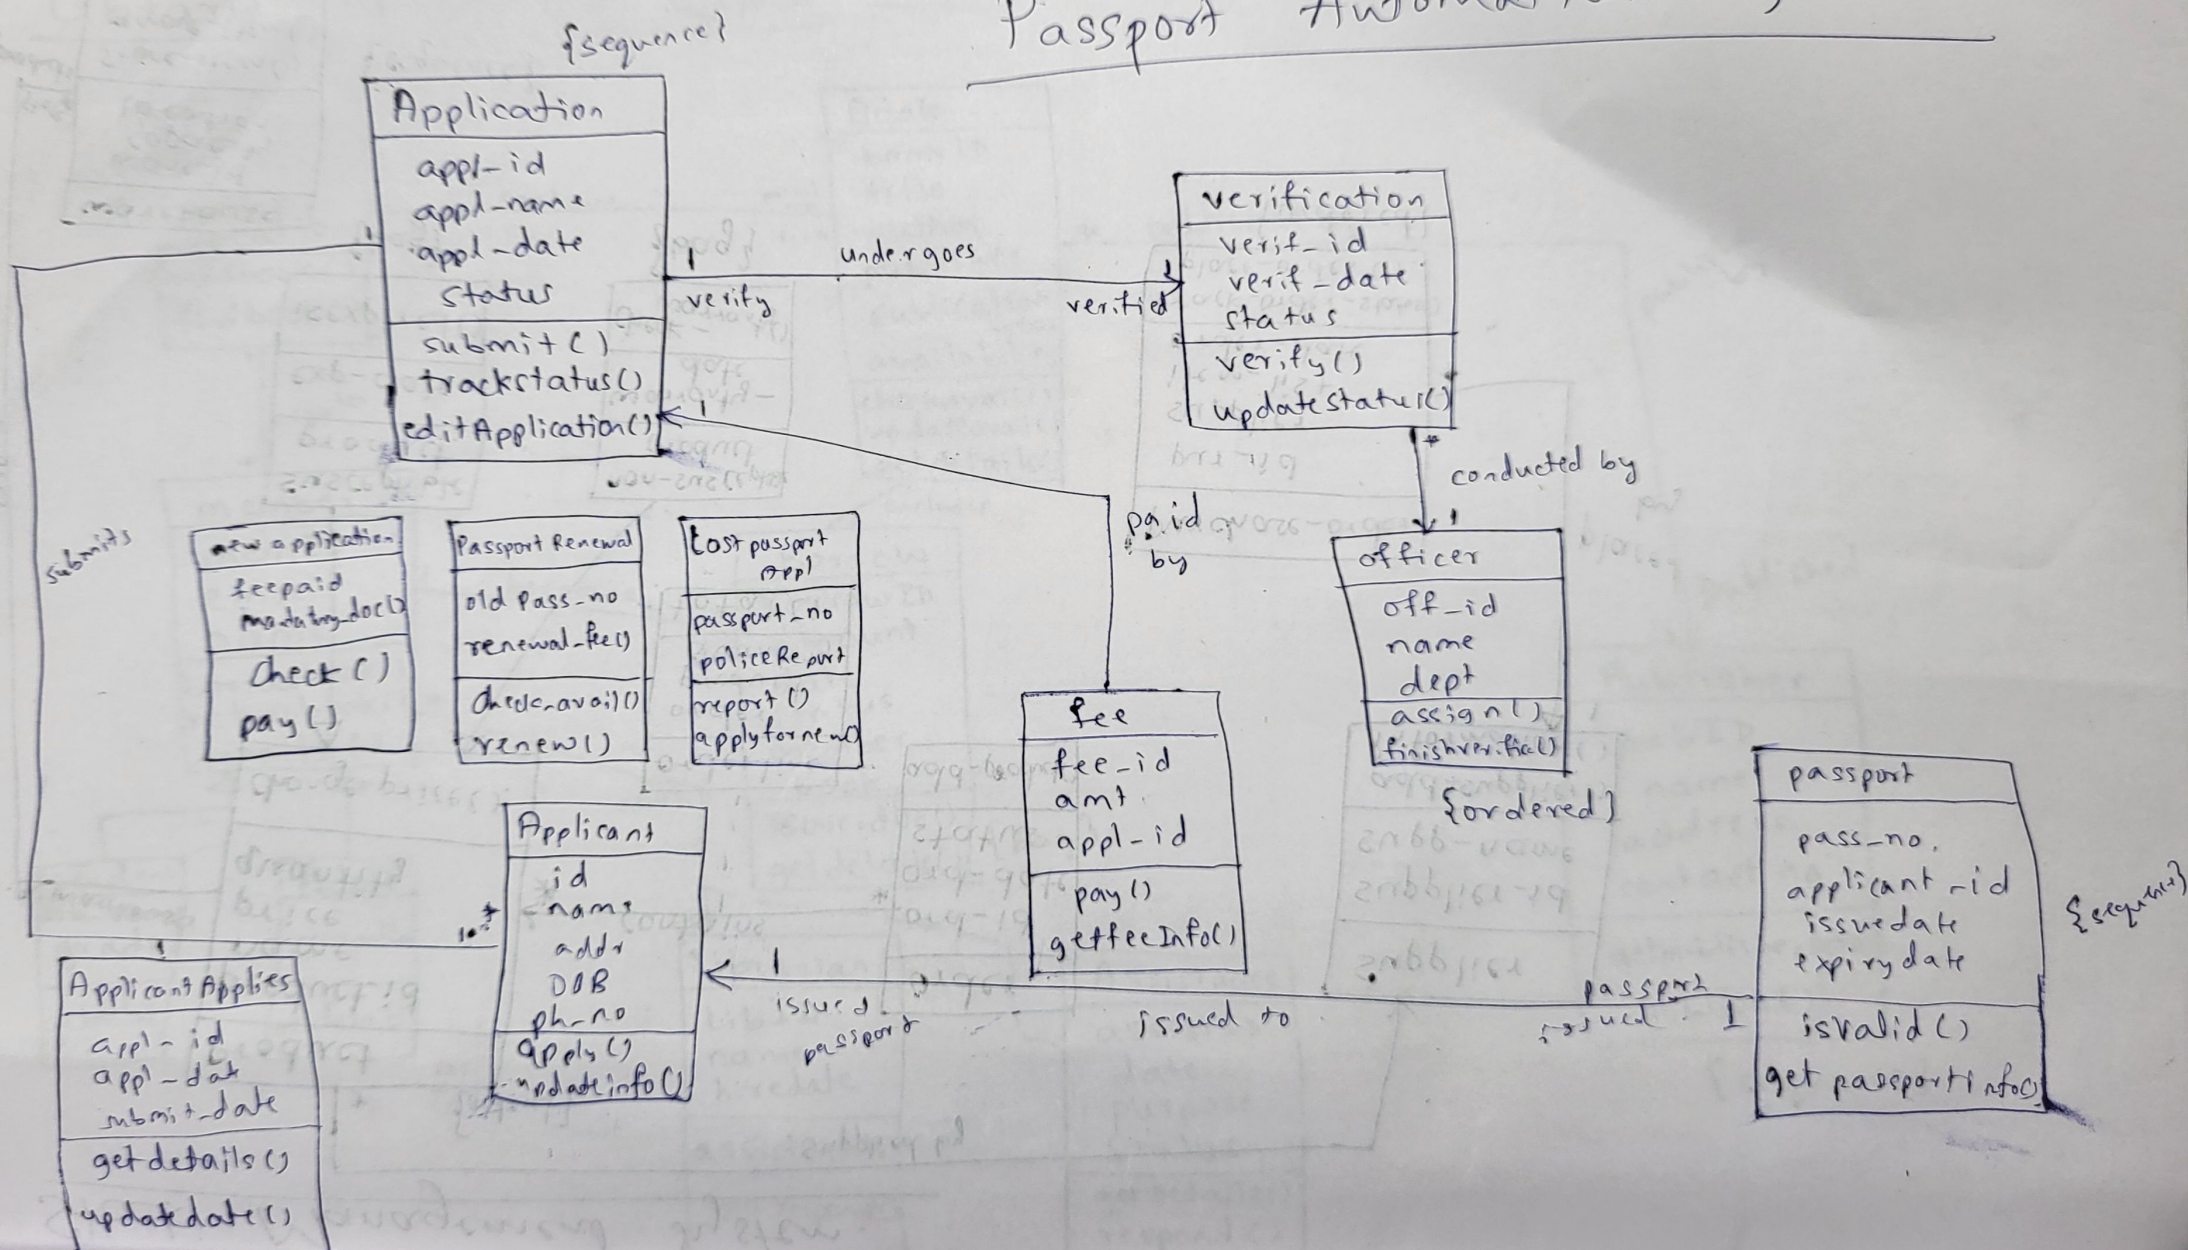 Passport
{sequence}
Application
appl-id
appl-name
appl-date
status
submit()
trackstatus()
editApplication()
1
1
undergoes
verify
1
verified
verification
verif-id
verif-date
status
verify()
updatestatus()
*
conducted by
1
1
paid
by
officer
off-id
name
dept
assign()
{ordered}
submits
new application
feepaid
check()
pay()
Passport Renewal
old Pass-no
renewal-fee()
check-avail()
renew()
Lost passport
Appl
passport-no
policeReport
report()
applyfornew()
fee
fee-id
amt
appl-id
pay()
getfeeInfo()
Applicant
id
name
addr
DOB
ph-no
apply()
updateinfo()
1
issued
passport
issued to
passport
issued
1
passport
pass-no.
applicant-id
issuedate
expirydate
isvalid()
get passportinfo()
{sequence}
1
Applicant Applies
appl-id
appl-date
submit-date
getdetails()
updatedate()